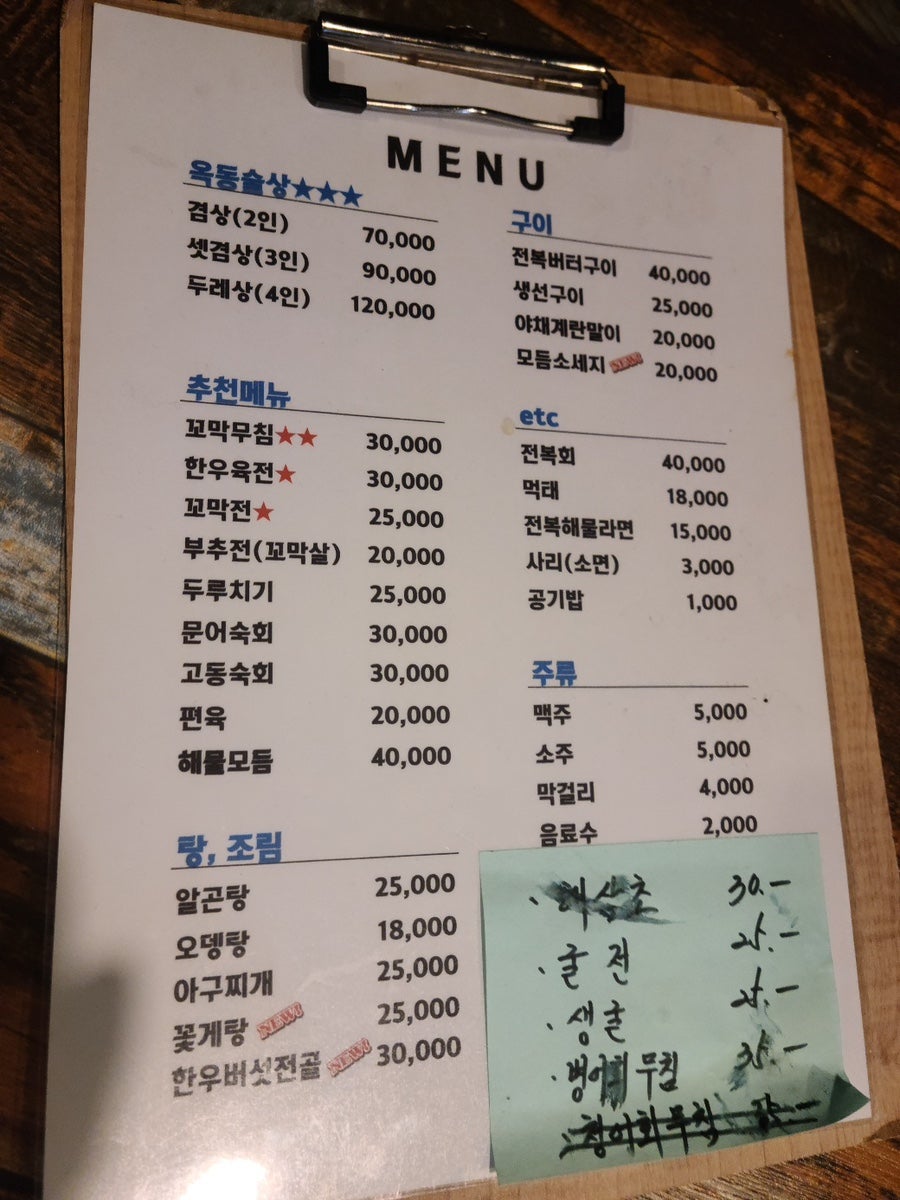 MENU
옥동술상★★★
겸상(2인) 70,000
셋겸상(3인) 90,000
두레상(4인) 120,000
추천메뉴
꼬막무침★★ 30,000
한우육전★ 30,000
꼬막전★ 25,000
부추전(꼬막살) 20,000
두루치기 25,000
문어숙회 30,000
고동숙회 30,000
편육 20,000
해물모듬 40,000
탕, 조림
알곤탕 25,000
오뎅탕 18,000
아구찌개 25,000
꽃게탕 NEW 25,000
한우버섯전골 NEW 30,000
구이
전복버터구이 40,000
생선구이 25,000
야채계란말이 20,000
모듬소세지 NEW 20,000
etc
전복회 40,000
먹태 18,000
전복해물라면 15,000
사리(소면) 3,000
공기밥 1,000
주류
맥주 5,000
소주 5,000
막걸리 4,000
음료수 2,000
30.-
· 굴 전 25.-
· 생굴 25.-
· 병어회 무침 35.-
· 청어회무침